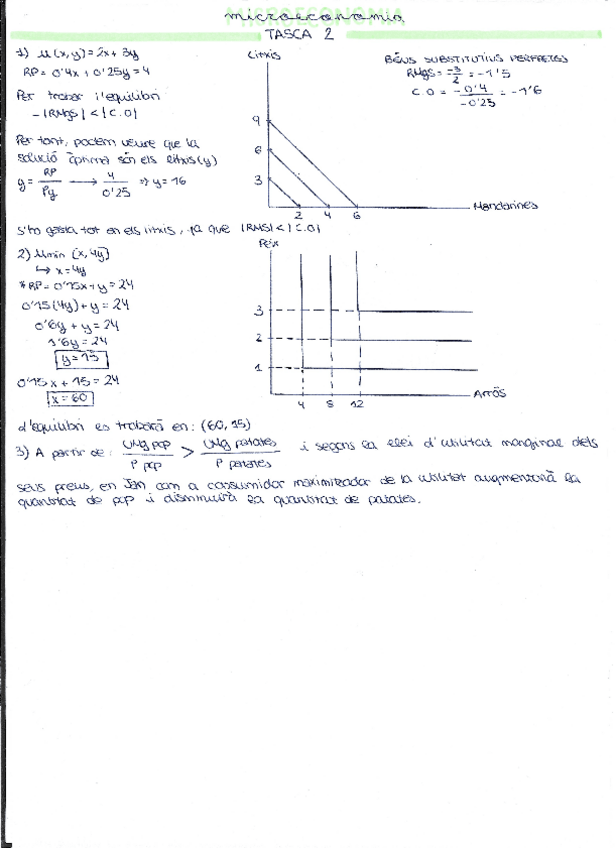 MICROECONOMIA
microeconomia
TASCA 2
1) u(x,y)=2x+3y
RP= 0'4x+0'25y=4
Per trobar l'equilibri
-|RMgS|<|C.O|
Per tant, podem veure que la
solució òptima són els litxis (y)
y= RP/Py → 4/0'25 => y=16
Litxis
9
6
3
2 4 6
Mandarines
BÉNS SUBSTITUTIUS PERFECTES
RMgS= -3/2 = -1'5
C.O= -0'4/-0'25 = -1'6
S'ho gasta tot en els litxis, ja que |RMS|<|C.O|
2) Umin {x, 4y}
↳ x=4y
* RP= 0'15x+y=24
0'15(4y)+y=24
0'6y+y=24
1'6y=24
y=15
0'15x+15=24
x=60
Peix
3
2
1
4 8 12
Arròs
L'equilibri es trobarà en: (60,15)
3) A partir de: UMg pop/P pop > UMg patates/P patates i segons la llei d'utilitat marginal dels
seus preus, en Jan com a consumidor maximitzador de la utilitat augmentarà la
quantitat de pop i disminuirà la quantitat de patates.